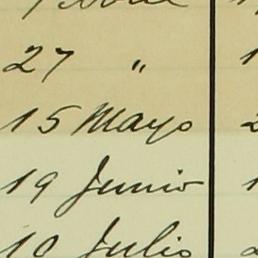 27 "
15 Mayo
19 Junio
10 Julio